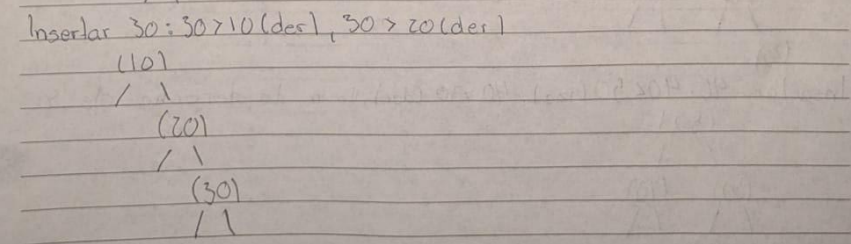 Insertar 30: 30>10 (der), 30 > 20 (der)
(10)
/ \
(20)
/ \
(30)
/ \